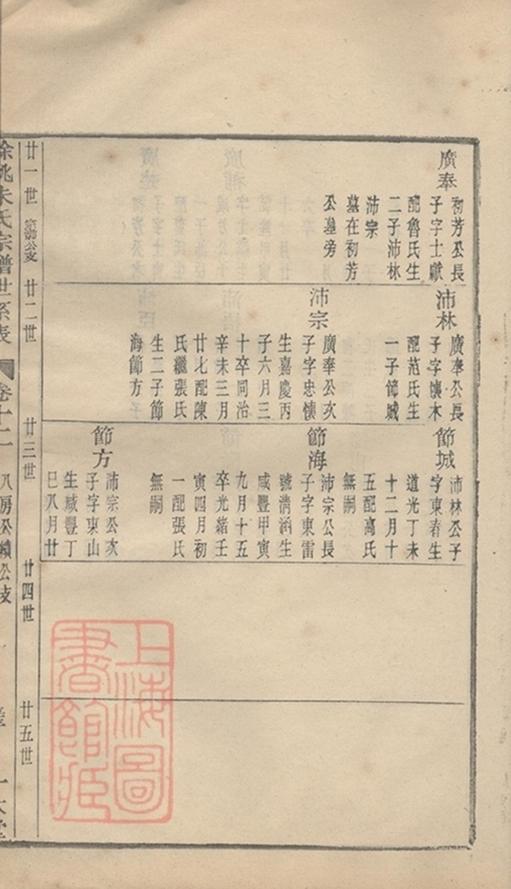 廣奉
初芳公長
子字士獻
配魯氏生
二子沛林
沛宗
墓在初芳
公墓旁
沛林
廣奉公長
子字懷木
配范氏生
一子節城
沛宗
廣奉公次
子字忠懷
生嘉慶丙
子六月三
十卒同治
辛未三月
廿七配陳
氏繼張氏
生二子節
海節方
節城
沛林公子
字東春生
道光丁未
十二月十
五配高氏
無嗣
節海
沛宗公長
子字東雷
號清涵生
咸豐甲寅
九月十五
卒光緒壬
寅四月初
一配張氏
無嗣
節方
沛宗公次
子字東山
生咸豐丁
巳八月廿
廿一世
廿二世
廿三世
廿四世
廿五世
餘姚朱氏宗譜世系表
卷十二
八房公績公支
一大堂
上海圖
書館藏